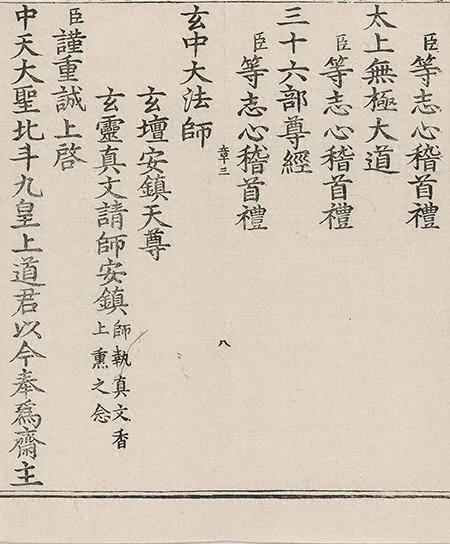 臣等志心稽首禮
太上無極大道
臣等志心稽首禮
三十六部尊經
臣等志心稽首禮
章三
八
玄中大法師
玄壇安鎮天尊
玄靈真文請師安鎮師執真文香
上熏之念
臣謹重誠上啓
中天大聖北斗九皇上道君以今奉爲齋主